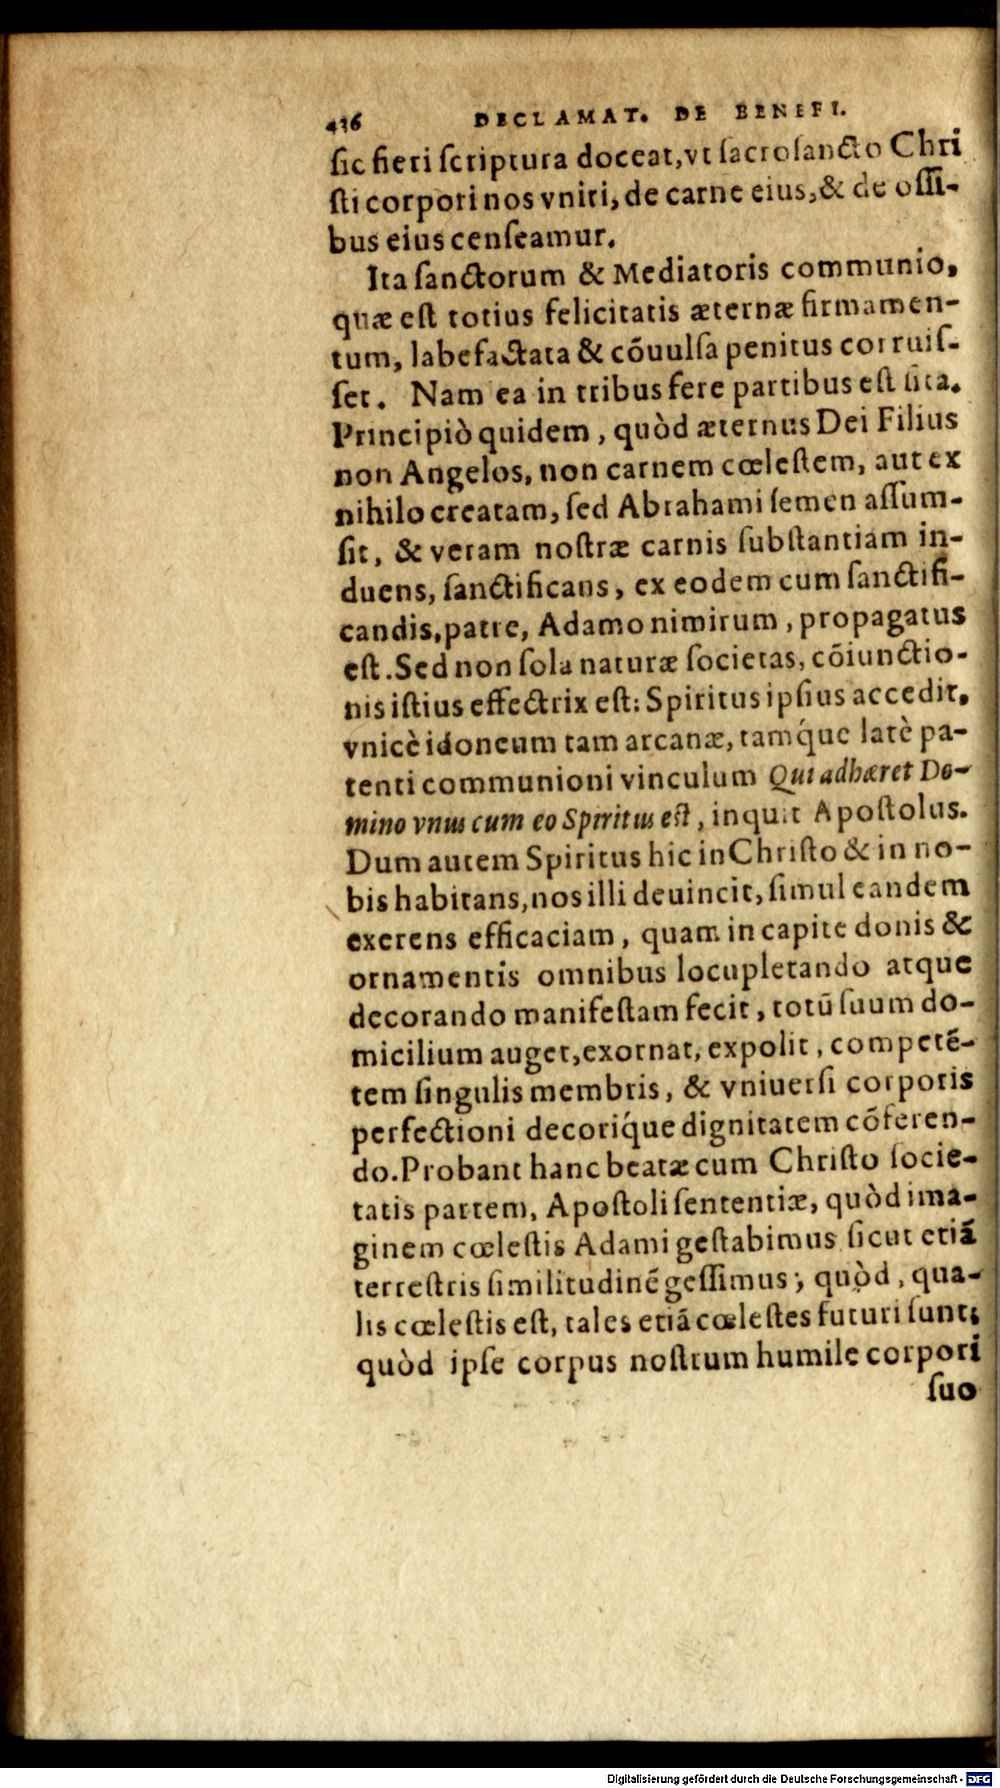 436 DECLAMAT. DE BENEFI.
ſic fieri ſcriptura doceat, vt ſacroſancto Chri
ſti corpori nos vniri, de carne eius, & de oſſi-
bus eius cenſeamur.
Ita ſanctorum & Mediatoris communio,
quæ eſt totius felicitatis æternæ firmamen-
tum, labefactata & cõuulſa penitus corruiſ-
ſet. Nam ea in tribus fere partibus eſt ſita.
Principiò quidem, quòd æternus Dei Filius
non Angelos, non carnem cœleſtem, aut ex
nihilo creatam, ſed Abrahami ſemen aſſum-
ſit, & veram noſtræ carnis ſubſtantiam in-
duens, ſanctificans, ex eodem cum ſanctifi-
candis, patre, Adamo nimirum, propagatus
eſt. Sed non ſola naturæ ſocietas, cõiunctio-
nis iſtius effectrix eſt: Spiritus ipſius accedit,
vnicè idoneum tam arcanæ, tamq́ue latè pa-
tenti communioni vinculum Qui adhæret Do-
mino vnus cum eo Spiritus eſt, inquit Apoſtolus.
Dum autem Spiritus hic in Chriſto & in no-
bis habitans, nos illi deuincit, ſimul eandem
exerens efficaciam, quam in capite donis &
ornamentis omnibus locupletando atque
decorando manifeſtam fecit, totũ ſuum do-
micilium auget, exornat, expolit, competẽ-
tem ſingulis membris, & vniuerſi corporis
perfectioni decoriq́ue dignitatem cõferen-
do. Probant hanc beatæ cum Chriſto ſocie-
tatis partem, Apoſtoli ſententiæ, quòd ima-
ginem cœleſtis Adami geſtabimus ſicut etiã
terreſtris ſimilitudinẽ geſſimus; quòd, qua-
lis cœleſtis eſt, tales etiã cœleſtes futuri ſunt;
quòd ipſe corpus noſtrum humile corpori
ſuo
Digitalisierung gefördert durch die Deutsche Forschungsgemeinschaft - DFG